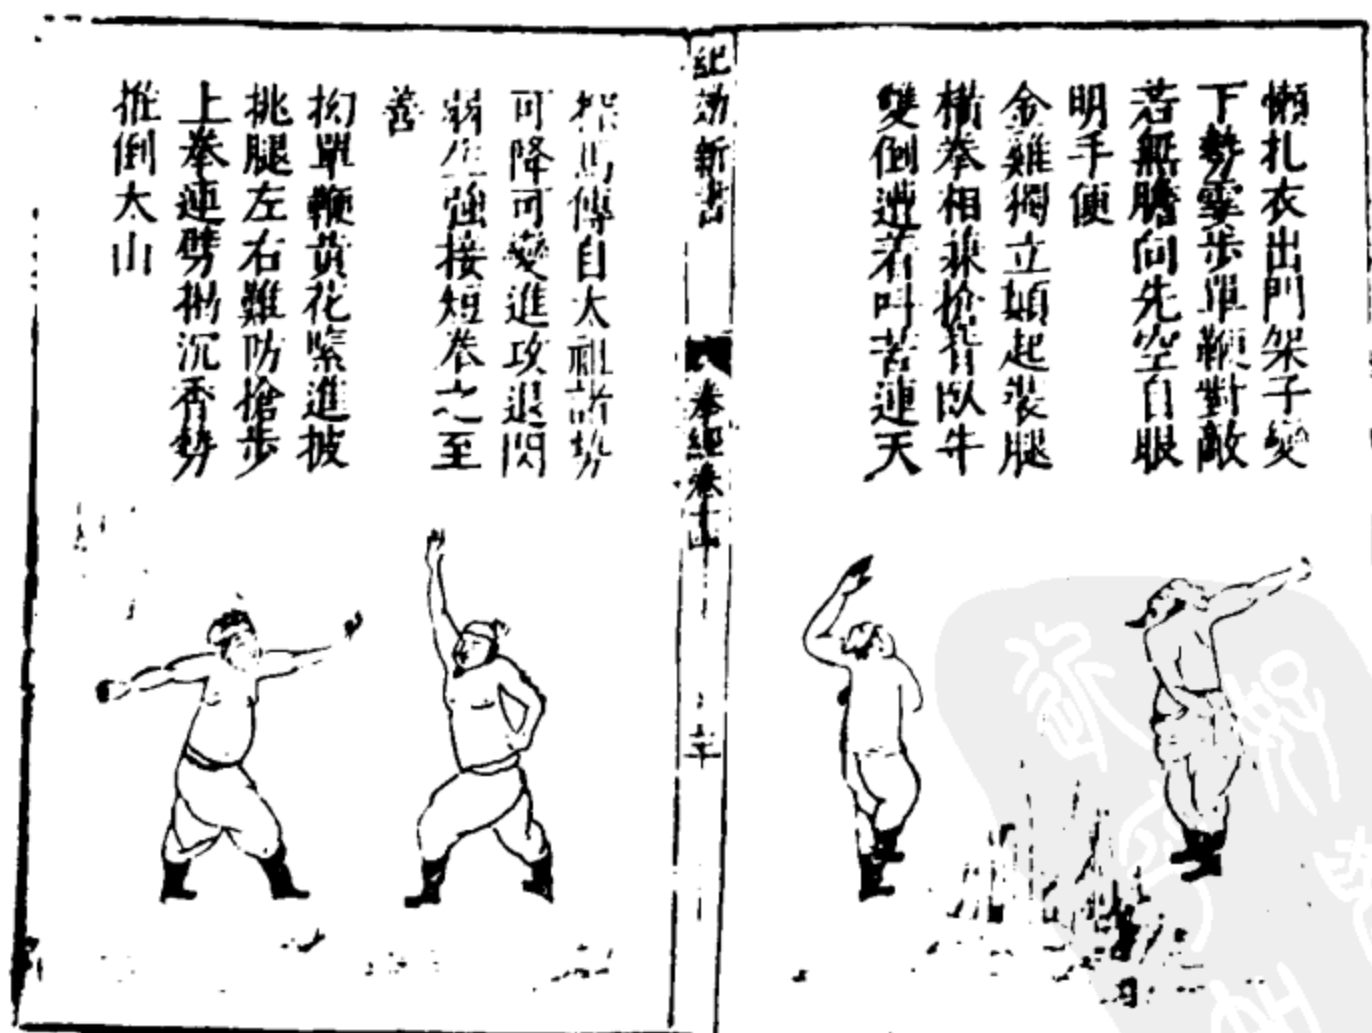 懶扎衣出門架子變
下勢霎步單鞭對敵
若無膽向先空自眼
明手便
金雞獨立顛起裝腿
橫拳相兼搶背臥牛
雙倒遭着叫苦連天
紀効新書
拳經卷十四
探馬傳自太祖諸勢
可降可變進攻退閃
弱生強接短拳之至
善
拗單鞭黃花緊進披
挑腿左右難防搶步
上拳連劈揭沉香勢
推倒太山